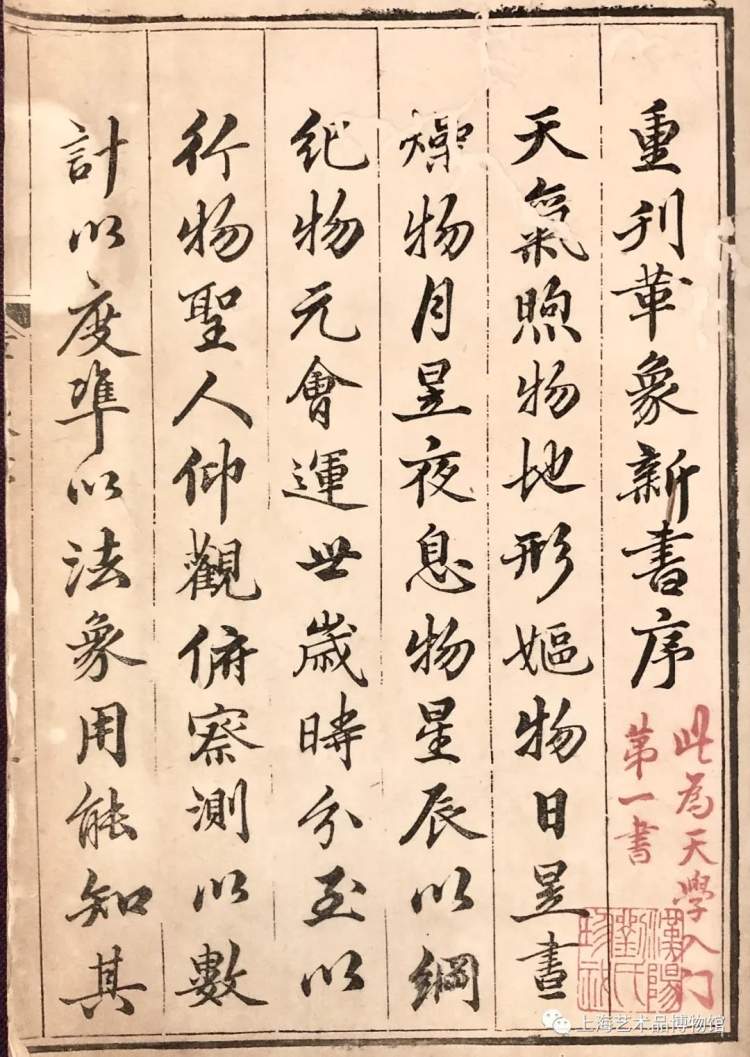 重刊革象新書序
此為天學入门
第一書
漢陽
劉氏
天氣煦物地形嫗物日昱晝
燥物月昱夜息物星辰以綱
紀物元會運世歲時分至以
行物聖人仰觀俯察測以數
計以度準以法象用能知其
上海艺术品博物馆